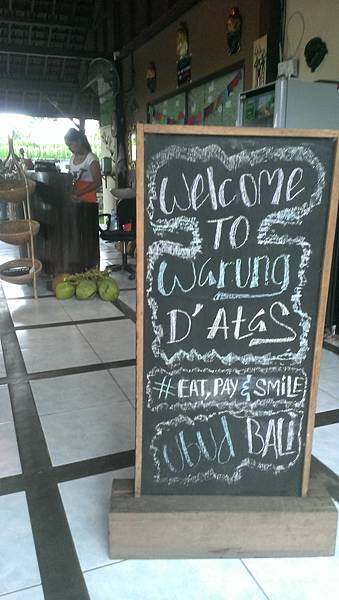 WELCOME
TO
Warung
D'AtaS
# EAT, PAY & SMiLE
Ubud BALI